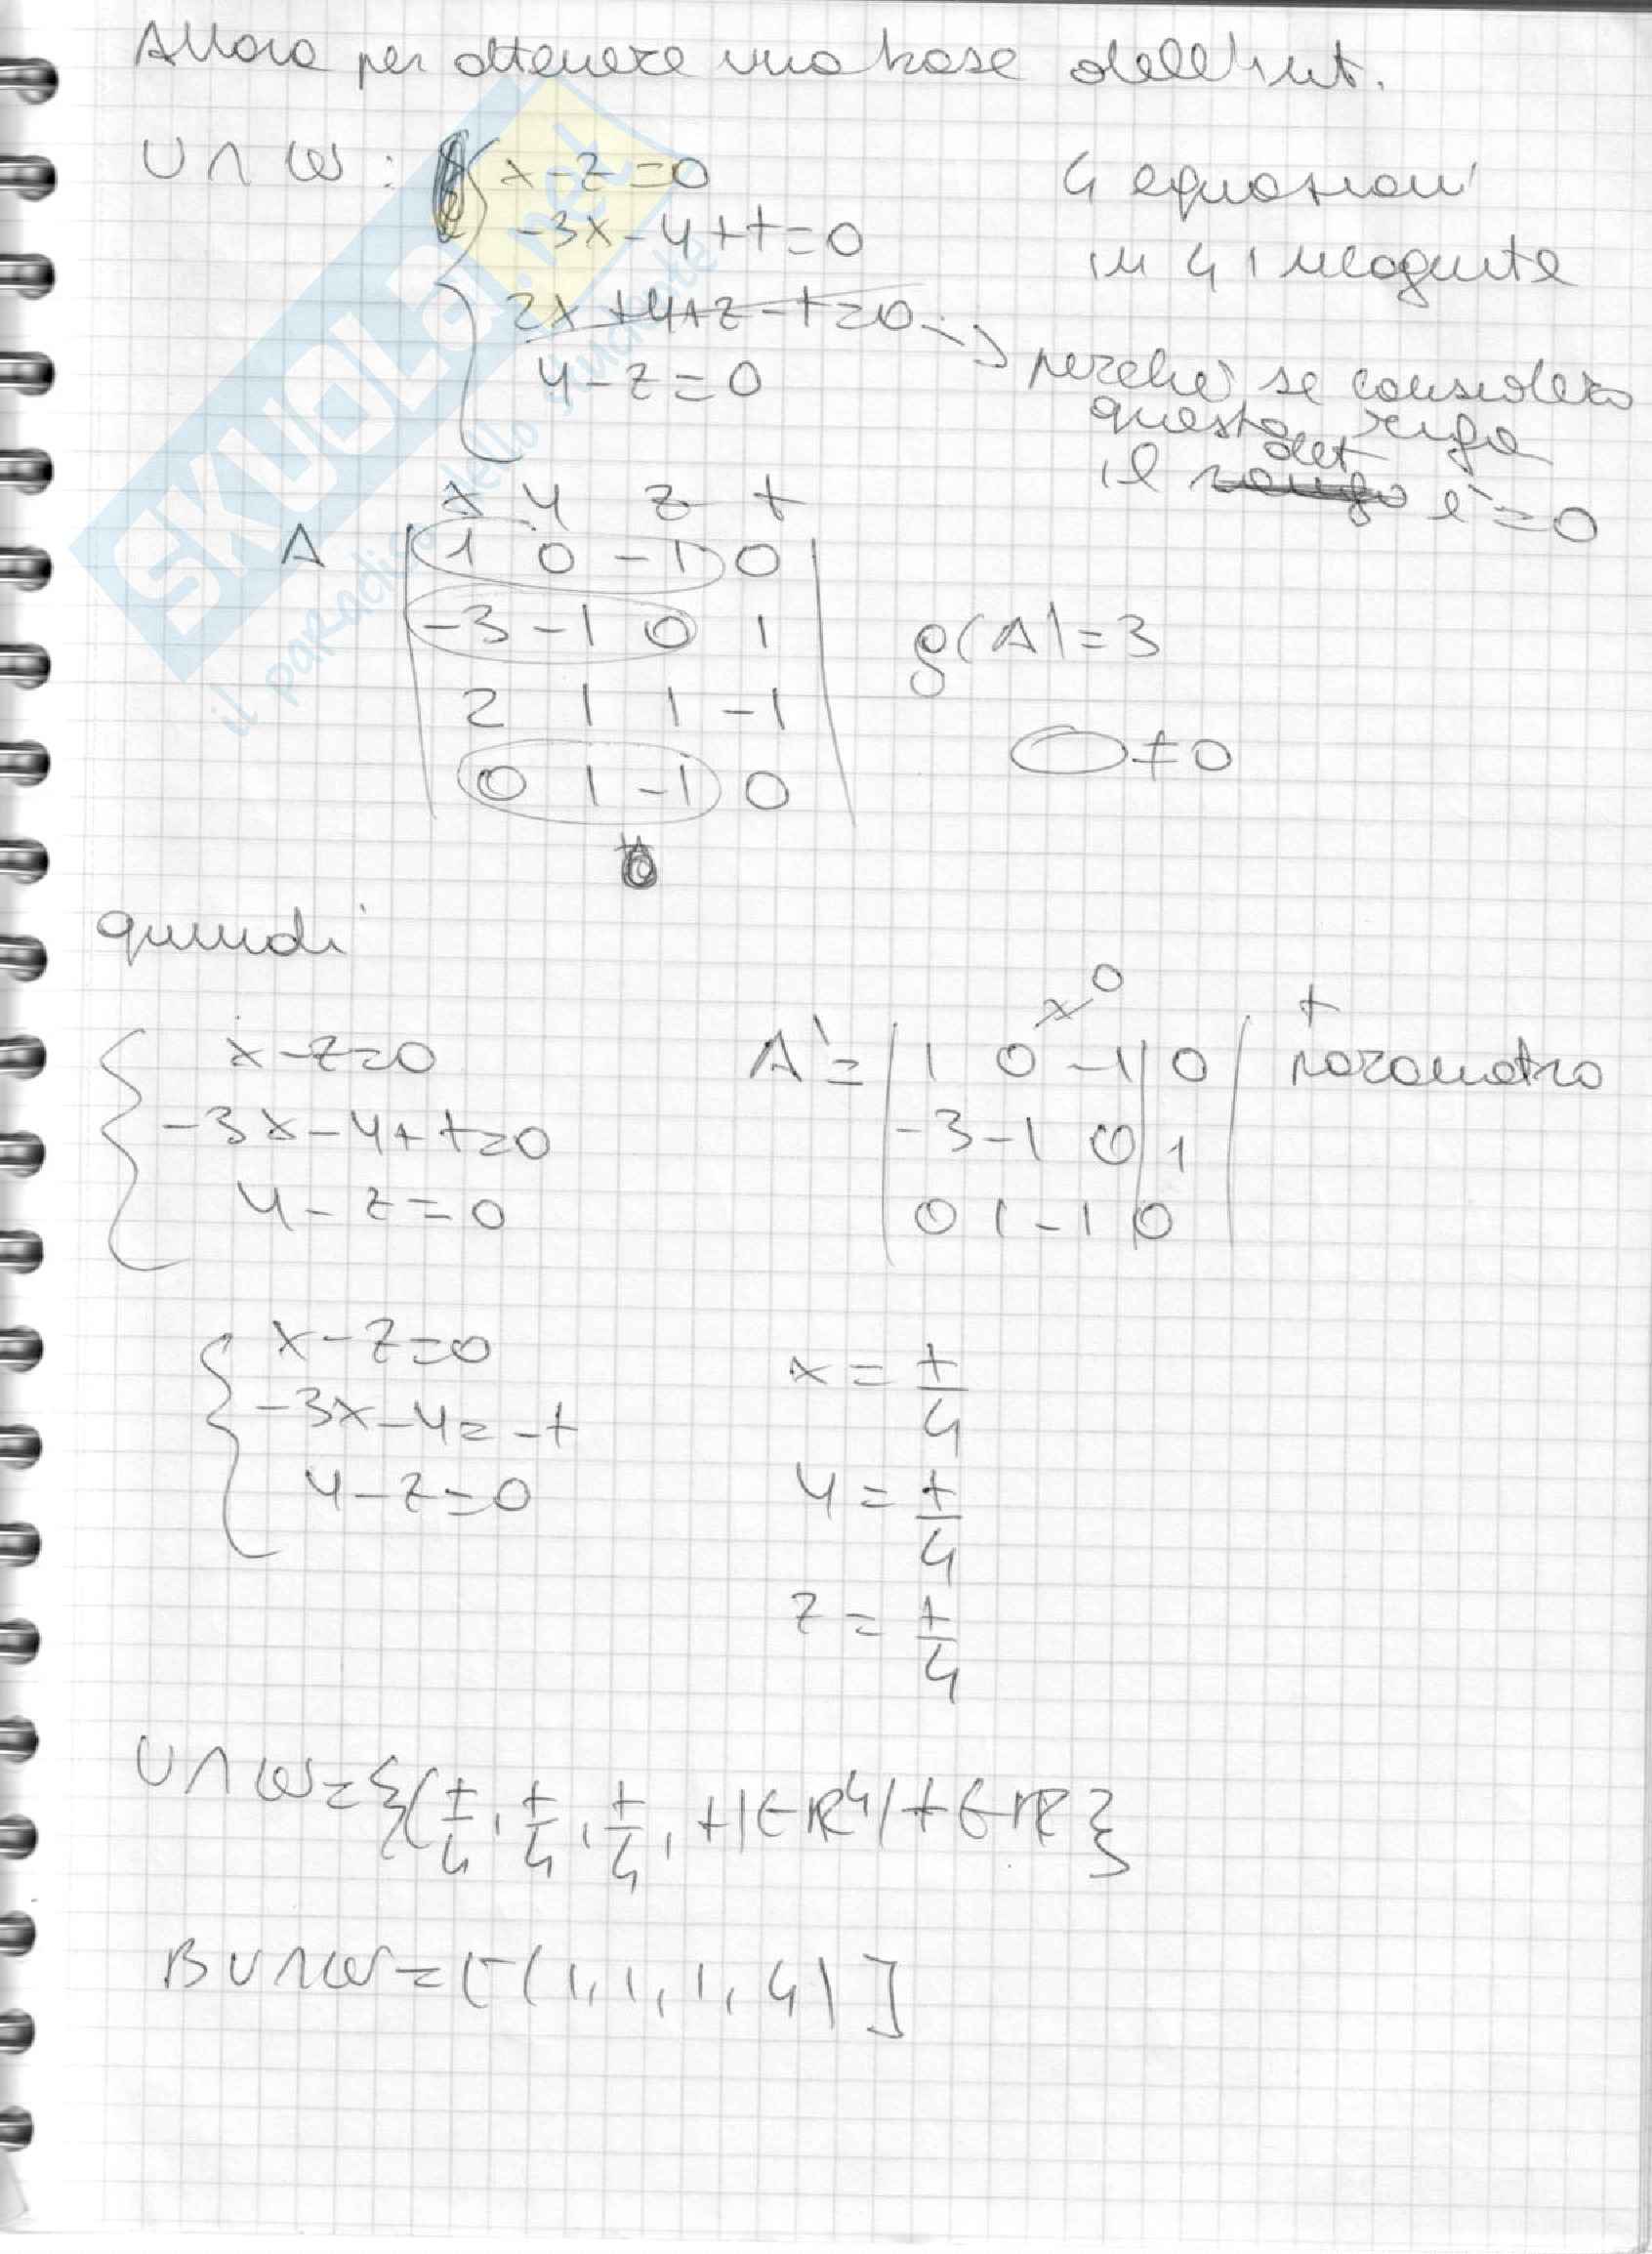 Allora per ottenere una base dell'int.
U∩W : { x-z=0
-3x-y+t=0
2x+y+z-t=0 →
y-z=0
4 equazioni
in 4 incognite
perché se considero
questa riga
il det è =0
x y z t
A | 1 0 -1 0 |
-3 -1 0 1
2 1 1 -1
0 1 -1 0
ρ(A)=3
≠0
quindi
x-z=0
-3x-y+t=0
y-z=0
≠0
A'= | 1 0 -1 | 0 |
-3 -1 0 | 1
0 1 -1 | 0
t
parametro
x-z=0
-3x-y=-t
y-z=0
x = t/4
y = t/4
z = t/4
U∩W={(t/4, t/4, t/4, t)∈R⁴/t∈R}
B U∩W=[(1,1,1,4)]
SKUOLA.net
il paradiso dello studente